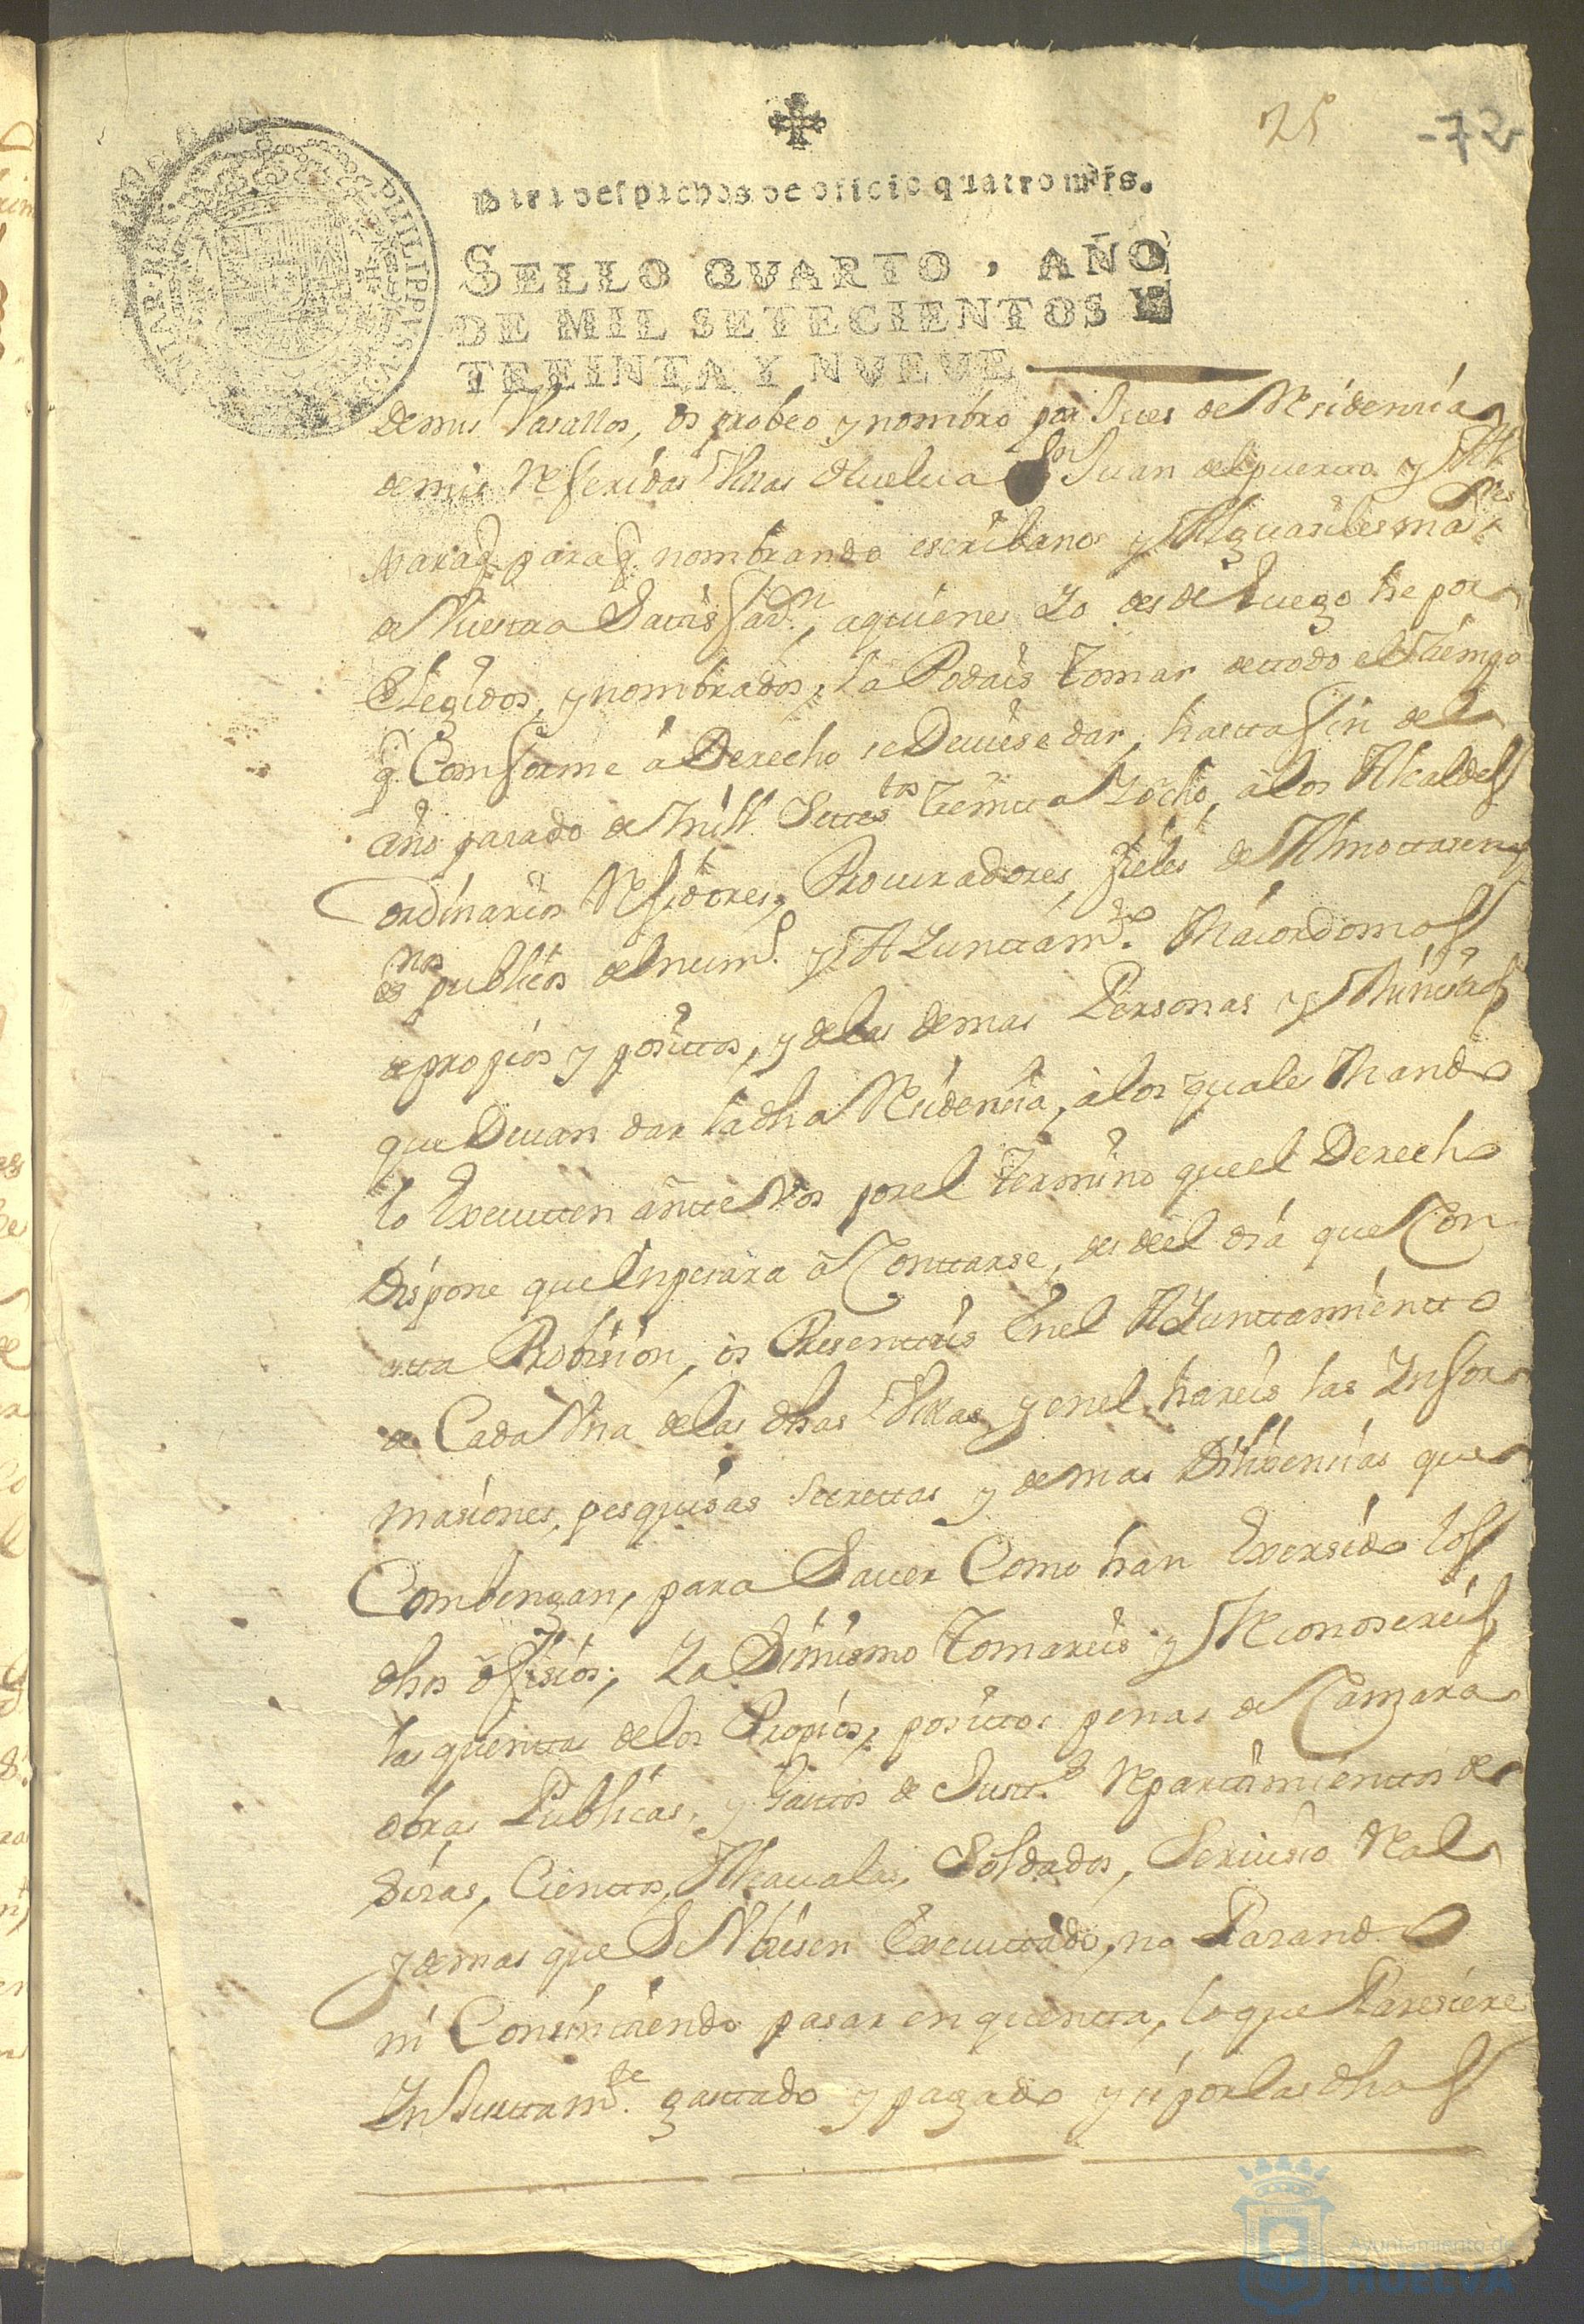 25
-72
Para despachos de oficio quatro mrs.
SELLO QVARTO, AÑO
DE MIL SETECIENTOS Y
TREINTA Y NVEVE
PHILIPPUS V
de mis Vasallos, os probeo y nombro por Jues de Residencia
de mis Referidas Villas Huelua Sn Juan del puerto y
para q. nombrando escribano y Alguasiles mares
de Vuestra Satisfacn., aquienes Yo desde Luego he por
Elegidos, y nombrados, la Podais Tomar de ttodo el Tiempo
q. Comforme á Derecho se Deuiese dar, hastta fin del
año pasado de Mill Settestos Treintta Yocho, à los Alcaldes
ordinarios Residores, Procuradores, fieles de Almottasen
esnos publicos del numo. y AYunttamto. Maiordomos
de propios y posittos, y delas demas Personas y Ministros
que Deuan dar la dha Residencia, à los quales Mando
lo Executten antte Vos por el Termino que el Derecho
Dispone que Enpesara à Conttarse, desdeel dia que Con
estta Probision, os Presentteis Enel AYunttamientto
de Cada Vna delas dhas Villas, y enel hareis las Ynfor
masiones, pesquisas Secrettas y demas Dilixencias que
Combengan, para Sauer Como han Exersido los
dhos ofisios; Ya Simismo Tomareis y Reconosereis
las quenttas delos Propios, posittos penas de Camara
obras Publicas, y Gasttos de Justta. Repartimienttos de
Sisas, Cienttos, Alcaualas, Soldados, Seruisio Real
y demas que Se Vbiesen Executtado, no Pasando
ni Consinttiendo pasar en quentta, lo que Paresiere
YnJusttamte. gasttado y pagado y si por las dhas
Ayuntamiento de
HUELVA